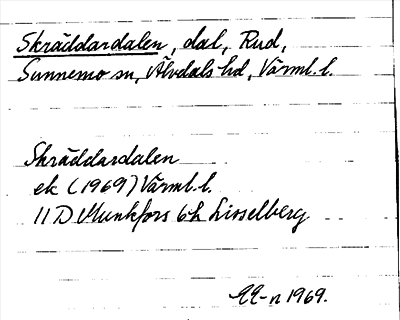 Skräddardalen, dal, Rud,
Sunnemo sn, Älvdals hd, Värml. l.
Skräddardalen
ek (1969) Värml. l.
11 D Munkfors 6h Lisselberg
1969.